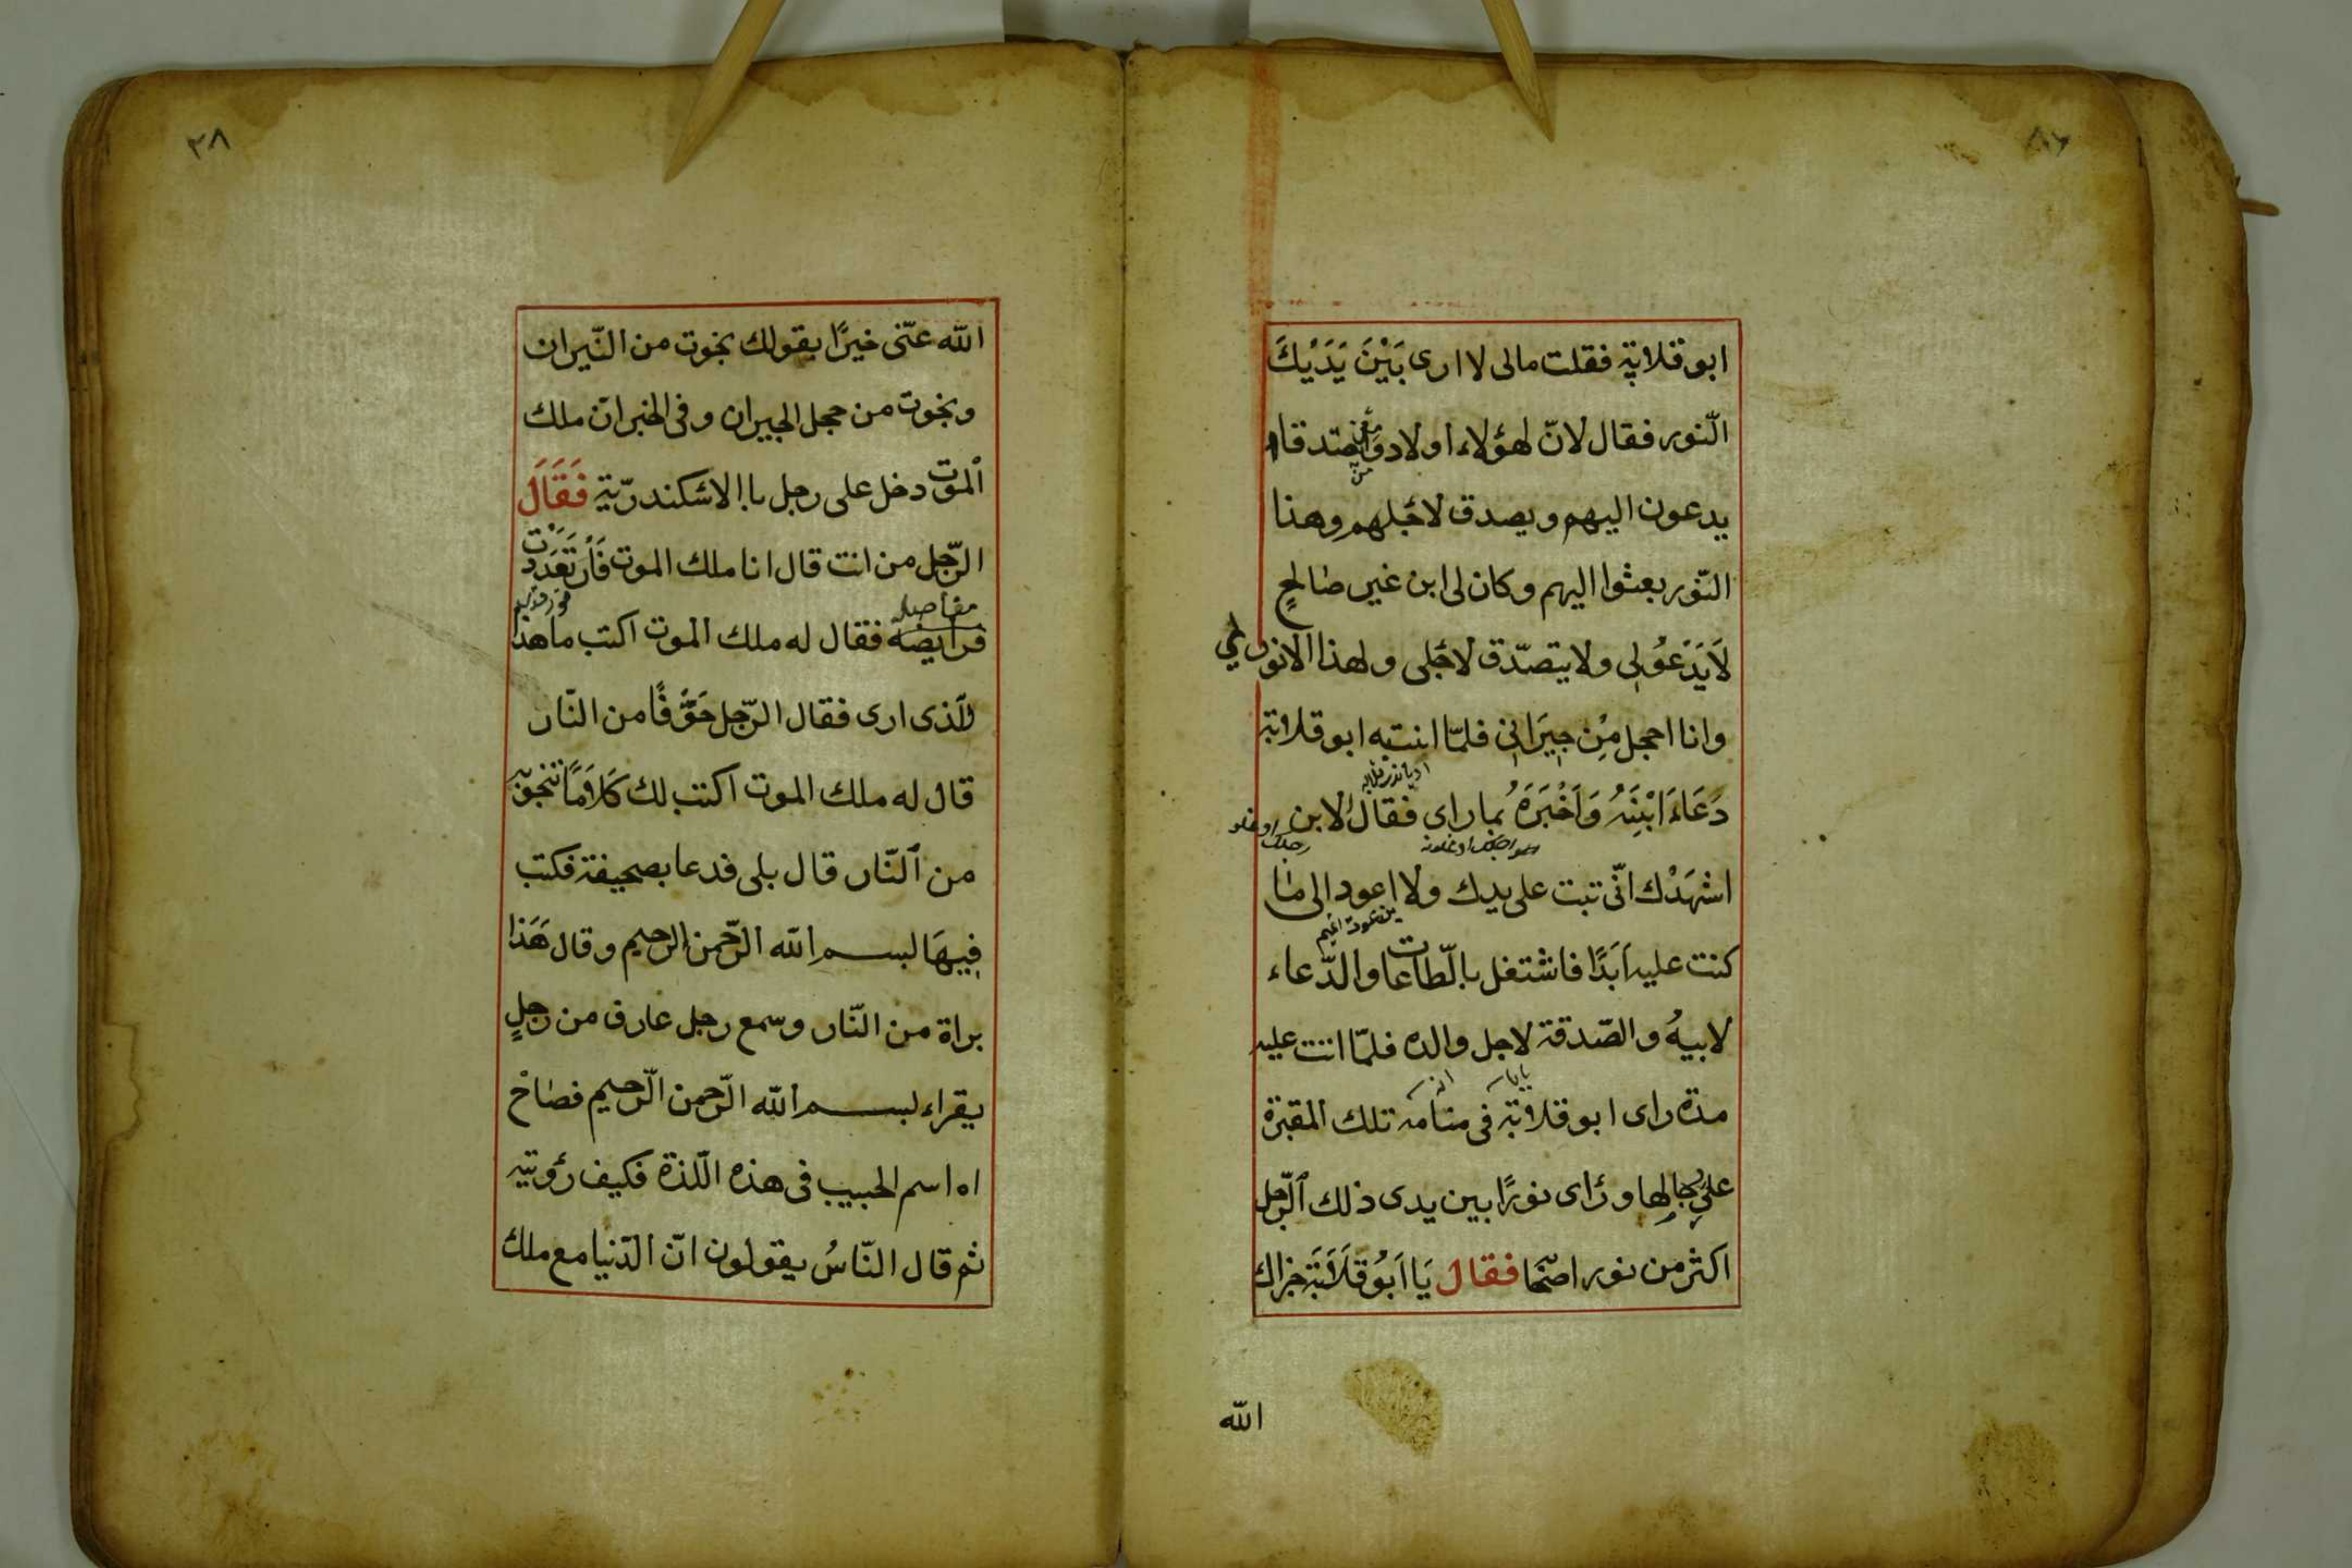 ابو قلابة فقلت مالى لا ارى بَيْنَ يَدَيْكَ
النّور فقال لانّ لهؤلاء اولاد و صدقاء
يدعون اليهم ويصدق لاجلهم وهذا
النّور بعثوا اليهم وكان لى ابن غير صَالحٍ
لَا يَدْعُو لِى ولا يتصدّق لاجلى ولهذا الانور لي
وانا احجل مِن جِيرَانِى فلمّا انتبه ابو قلابة
دَعَاءَ ابْنِنَهُ وَاَخْبَرَهُ بما راى فقال الابن
اشهَدْك انّى تبت على يديك ولا اعود الى مَا
كنت عليه اَبَدًا فاشتغل بالطّاعات والدّعاء
لابيهُ والصّدقة لاجل والده فلمّا اتت عليه
مدة راى ابو قلابة فى منامه تلك المقبرة
على بحالِها ورَاى نورًا بين يدى ذلك الرّجل
اكثر من نور اصحَا فقال يَا اَبُو قَلَابَة جزاك
الله
٣٨
الله عنّى خيرًا بقولك نجوت من النّيران
ونجوت من حجل الجيران وفى الخبر انّ ملك
الموت دخل على رجل باالاسْكندريّة فَقَالَ
الرّجل من انت قال انا ملك الموت فَارْتَعَدَتْ
مفاصل
فرايضه فقال له ملك الموت اكتب ما هذ
الّذى ارى فقال الرّجل خَوْفًا من النّار
قال له ملك الموت اكتب لك كَلَامًا تنجو به
من النّار قال بلى فدعا بصحيفة فكتب
فِيهَا بسم الله الرّحمن الرحيم وقال هَذَا
براة من النّار وسمع رجل عارف من رجلٍ
يقراء بسم الله الرّحمن الرّحيم فصَاحْ
اه اسم الحبيب فى هذه اللّذة فكيف رؤيته
ثم قال النّاسُ يقولون انّ الدّنيا مع ملك